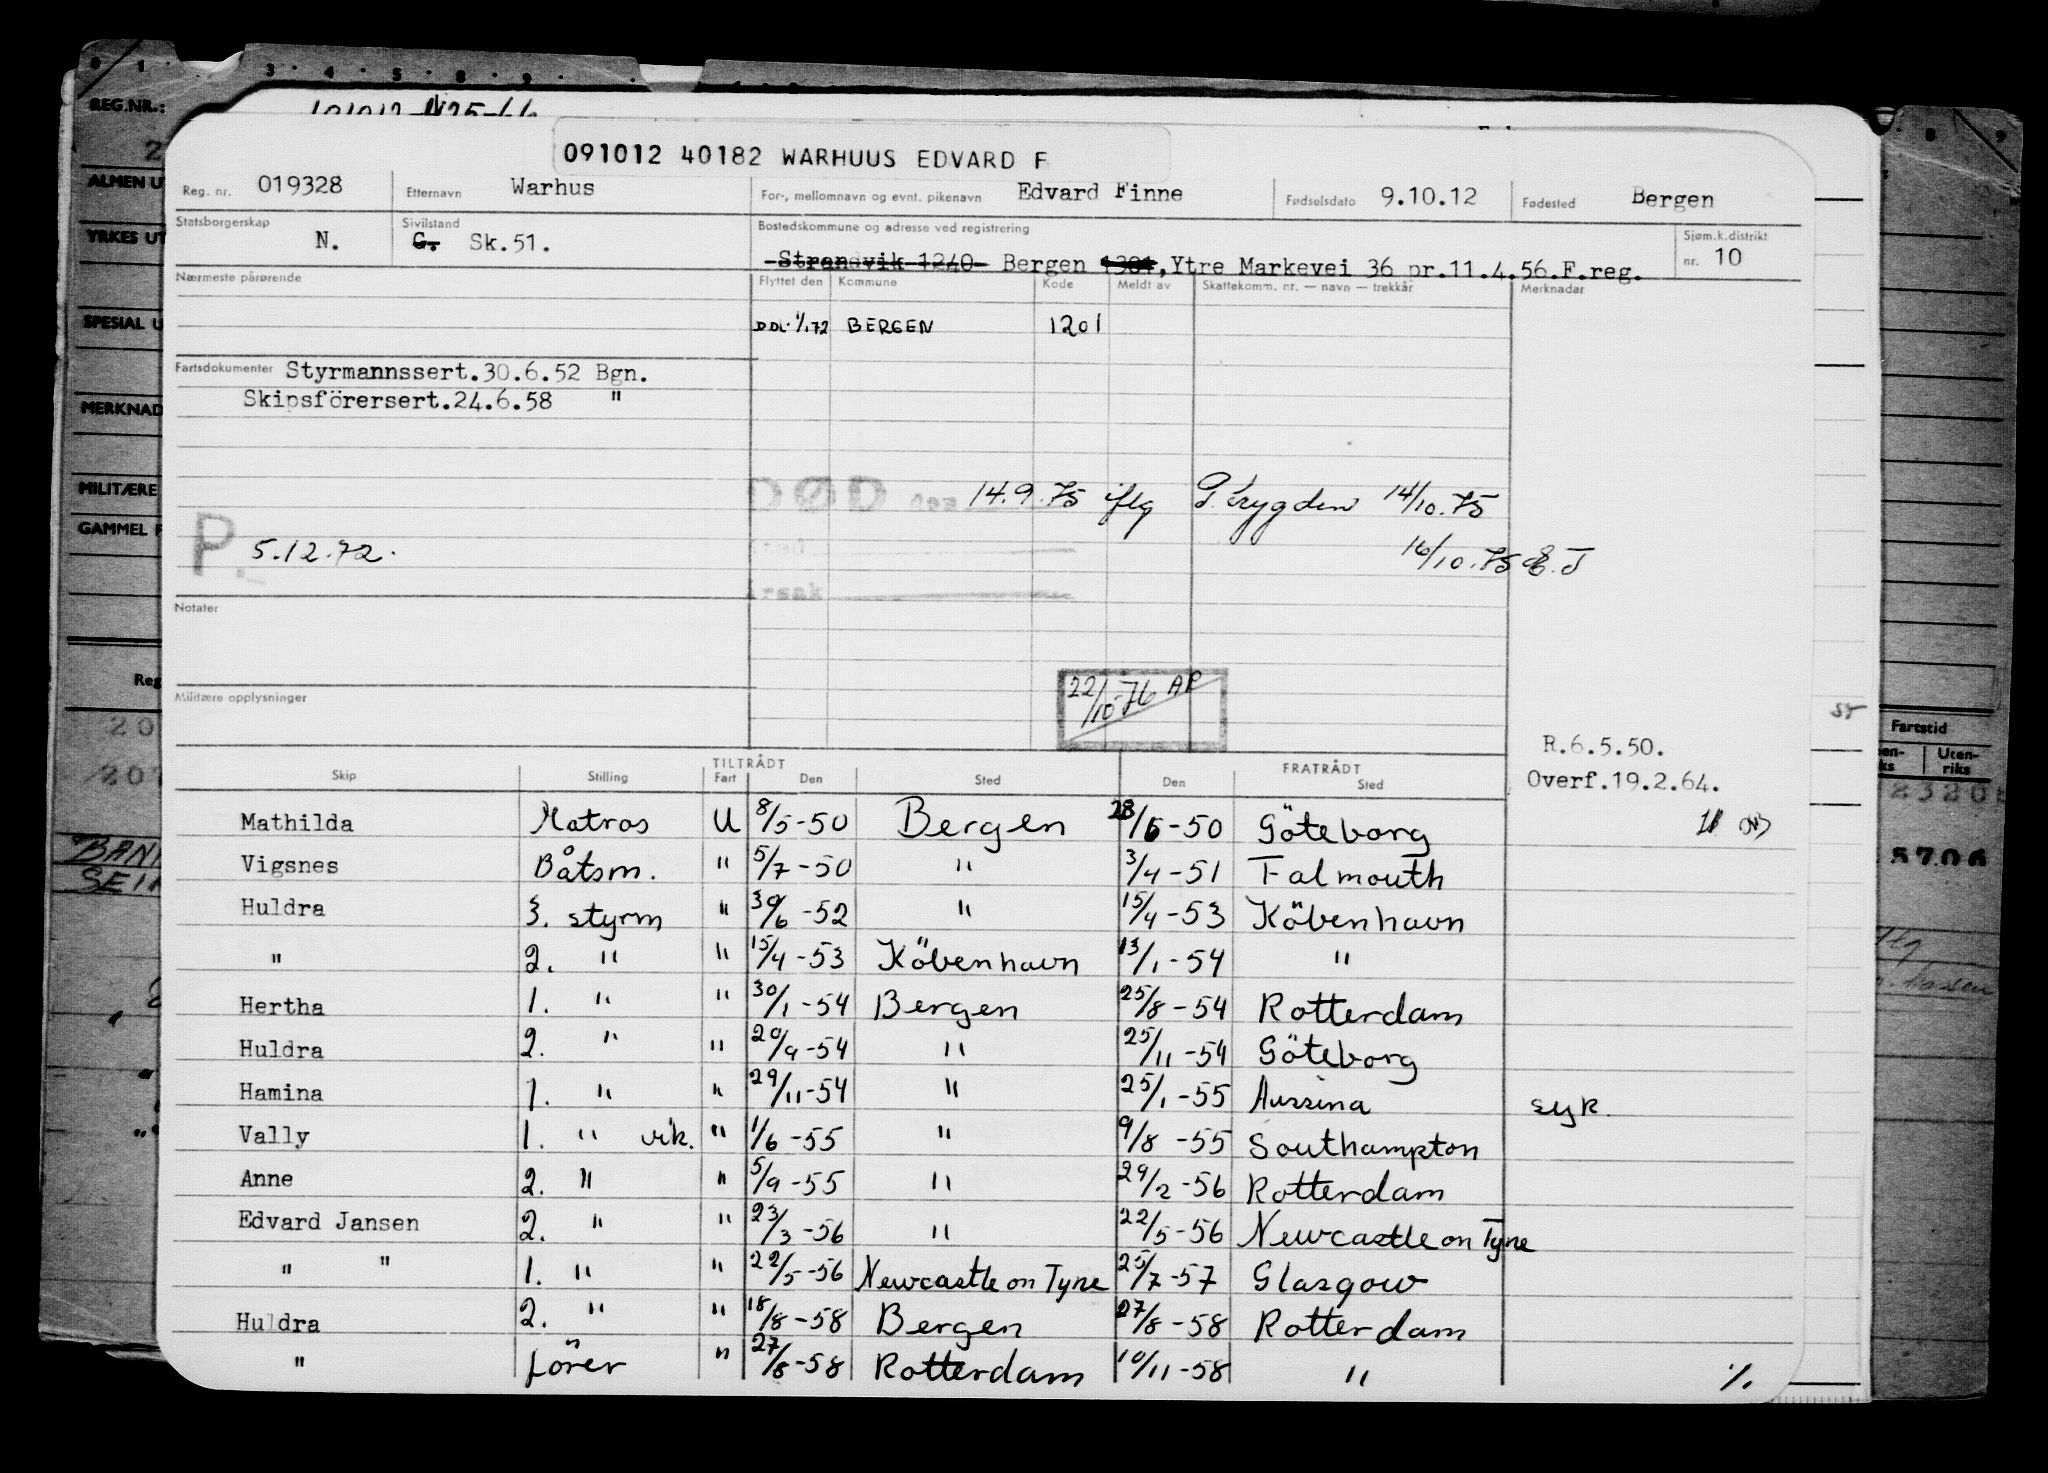 REG.NR.:
091012 40182 WARHUUS EDVARD F
Reg. nr. 019328 Etternavn Warhus For-, mellomnavn og evnt. pikenavn Edvard Finne Fødselsdato 9.10.12 Fødested Bergen
Statsborgerskap N. Sivilstand G. Sk.51. Bostedskommune og adresse ved registrering Sjøm.k.distrikt nr. 10
Strandvik 1240 Bergen 1301, Ytre Markevei 36 pr.11.4.56.F.reg.
Nærmeste pårørende Flyttet den Kommune Kode Meldt av Skattekomm. nr. — navn — trekkår Merknader
DDL 1/1.72 BERGEN 1201
Fartsdokumenter Styrmannssert.30.6.52 Bgn.
Skipsförersert.24.6.58 "
DØD 14.9.75 iflg P. trygden 14/10.75
P. 5.12.72.
Sted 16/10.75 E.J
Årsak
Notater
22/10-76 AP
Militære opplysninger
R.6.5.50.
Overf.19.2.64.
TILTRÅDT FRATRÅDT
Skip Stilling Fart Den Sted Den Sted
Mathilda Matros U 8/5-50 Bergen 28/6-50 Göteborg
Vigsnes Båtsm. " 5/7-50 " 3/4-51 Falmouth
Huldra 3. styrm " 30/6-52 " 15/4-53 Köbenhavn
" 2. " " 15/4-53 Köbenhavn 13/1-54 "
Hertha 1. " " 30/1-54 Bergen 25/8-54 Rotterdam
Huldra 2. " " 20/9-54 " 25/11-54 Göteborg
Hamina 1. " " 29/11-54 " 25/1-55 Aussina syk.
Vally 1. " vik. " 1/6-55 " 9/8-55 Southampton
Anne 2. " " 5/9-55 " 29/2-56 Rotterdam
Edvard Jansen 2. " " 23/3-56 " 22/5-56 Newcastle on Tyne
" " 1. " " 22/5-56 Newcastle on Tyne 25/7-57 Glasgow
Huldra 2. " " 18/8-58 Bergen 27/8-58 Rotterdam
" förer " 27/8-58 Rotterdam 10/11-58 " ./.
ALMEN U
YRKES UT
SPESIAL U
MERKNAD
MILITÆRE
GAMMEL F
Reg
Fartstid
Uten-
riks
5706